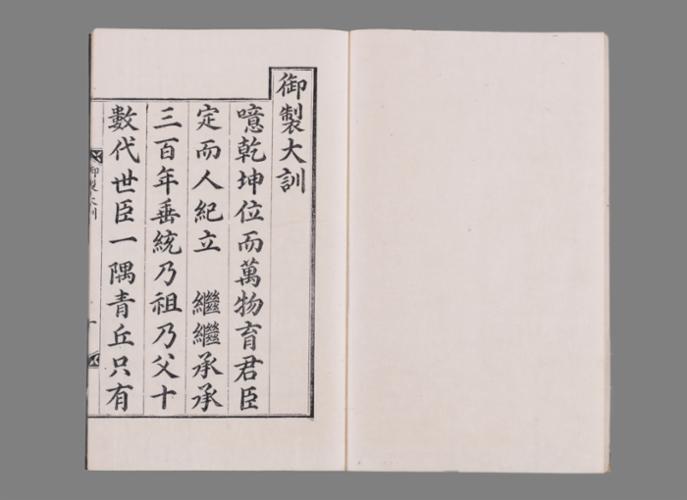 御製大訓
噫乾坤位而萬物育君臣
定而人紀立 繼繼承承
三百年垂統乃祖乃父十
數代世臣一隅青丘只有
御製大訓
一